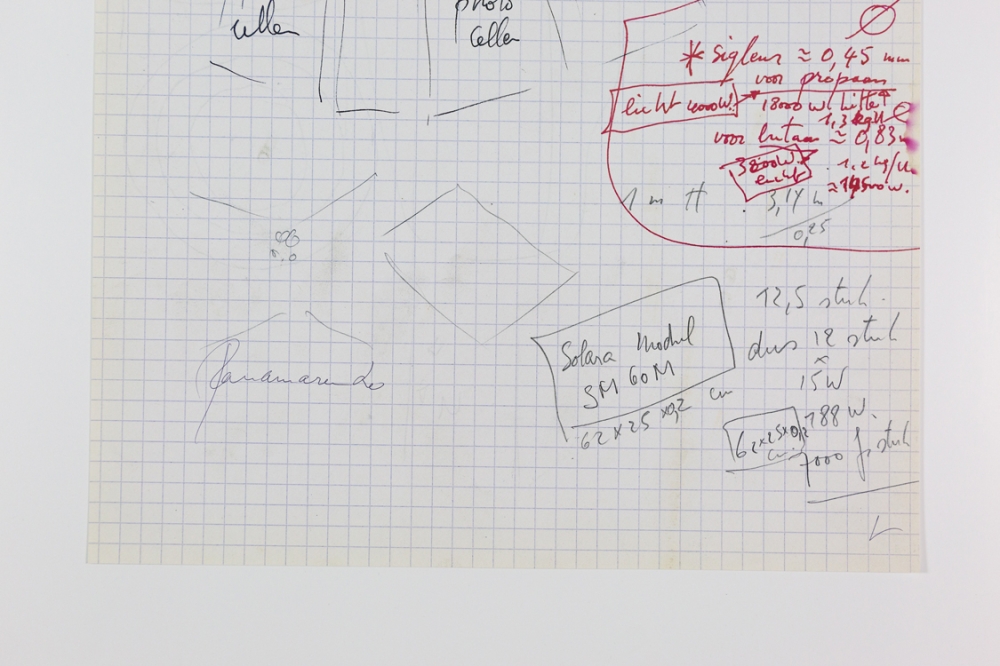 cellen
photo
cellen
* sigleur ≈ 0,45 mm
voor propaan
licht 4000W.
18000 W. hitte
1,3 kg/u
voor butaan ≈ 0,83
3800W.
licht
1,2 kg/u
≈ 14500 W.
1 m H . 3,14 m
0,25
12,5 stuk.
Solara Modul
SM 60M
62 x 25 x 0,2 cm
dus 12 stuk
x
15W
188 W.
62 x 25 x 0,2
cm.
7000 f. stuk
Panamarenko